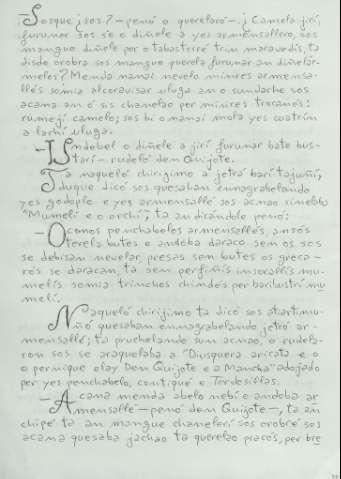 —Sosque ¿sos?— penó o querelaró —. ¡Camela jirí,
furuner sos se o diñele a yes armensallero, sos
mangue diñele per o tabasterré trin maravedis, ta
disde orobra sos mangue querela furunar an diñelar-
meles? Menda nanai nevelo minres armensa-
llés somia alcorauisar uluga an o sundache sos
acana an ó sis chanelao per minres trecanés:
rumejí camelo; sos bi o manai mola yes cuatrin
a larhí uluga.
—Undebel o diñele a jirí furunar bate bus-
tarí —rudeló dem Quijote.
Ta naqueló chirijimo a jetró barí tajuñí,
duque dicó sos quesaban ennagrabelando
yes godoplo e yes armensallé sos acnao sinelaba
"Mumelí e o orchí"; ta an dirándole penó:
—Ocomos penchabeles armensallés, ansós
oterela butes e andoba daraco, sem os sos
se debisan nevelar presas sem butes os greca-
rós se daracan, ta sem perfiñís insorallís mu-
melís somia trinchos chindés per barilustrí mu
melí.
Naqueló chirijimo ta dicó sos atartimu-
ñó quesaban ennagrabelando jetró ar-
mensallé; ta pruchelando sun acnao, o rudela-
ron sos se araquelaba a "Diusquera aricata e o
o pernique olay Dem Quijote e a Mancha" adojado
per yes penchabelo, cuntiqué e Tordesillas.
—Acana menda abelo nebi e andoba ar
mensallé —penó dem Quijote—, ta an
chipé ta an mangue chanelerí sos orobré sos
acana quesaba jachao ta querelao pracós, per bre